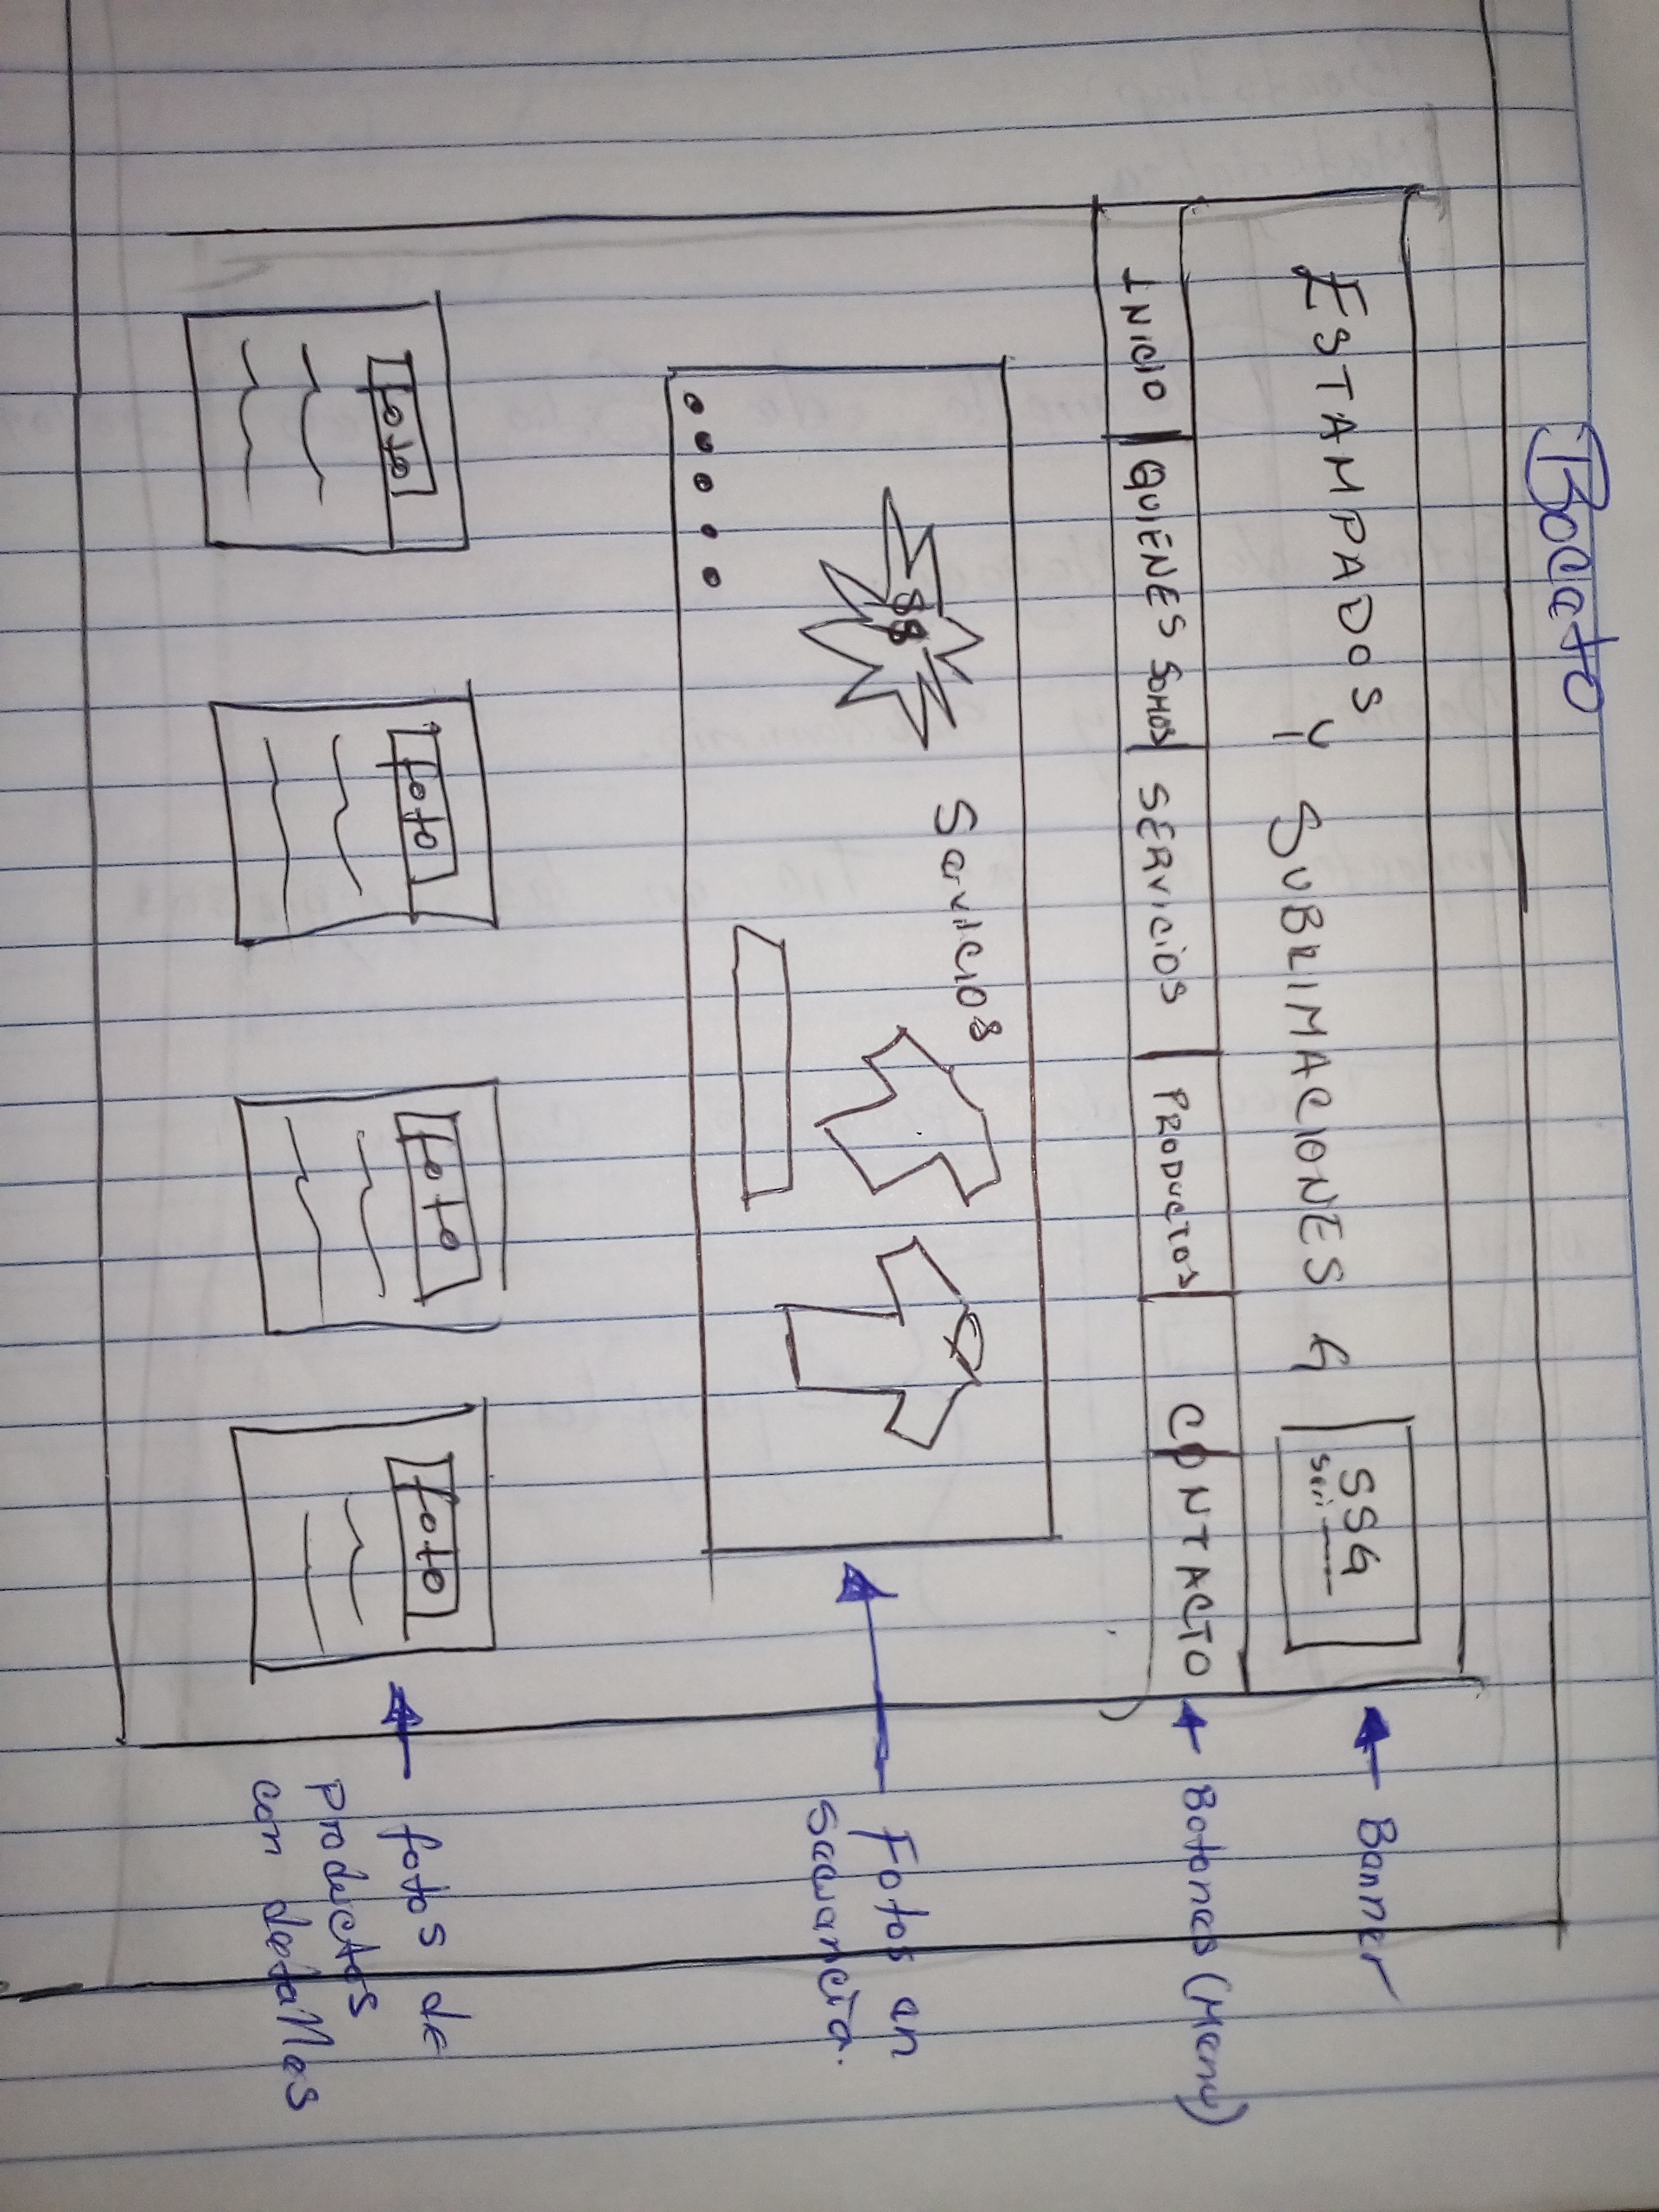 Boceto
ESTAMPADOS Y SUBLIMACIONES G
SSG
Seri
← Banner
INICIO | QUIENES SOMOS | SERVICIOS | PRODUCTOS | CONTACTO
← Botones (Menu)
Servicios
Fotos en
secuencia.
foto
foto
foto
foto
fotos de
productos
con detalles